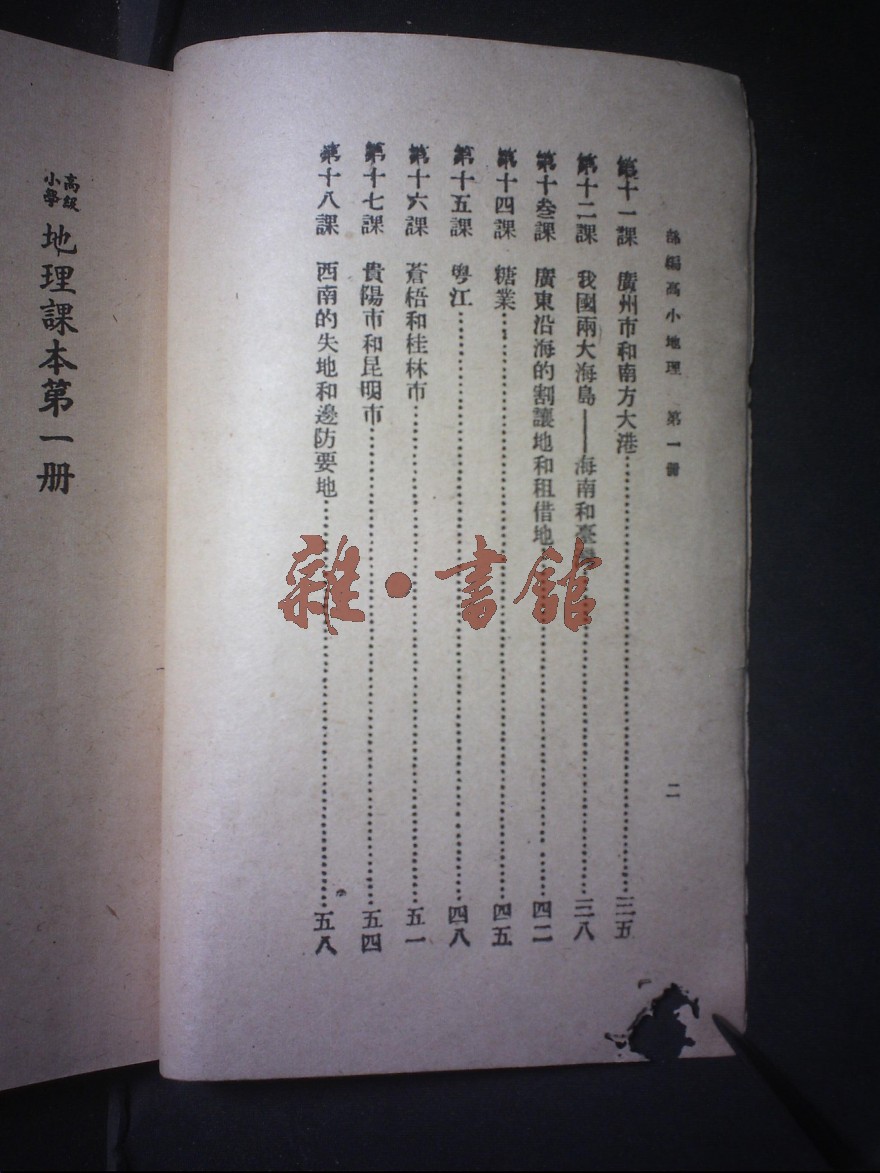 高級
小學
地理課本第一册
編高小地理 第一冊 二
第十一課 廣州市和南方大港…三五
第十二課 我國兩大海島——海南和臺灣…三八
第十叁課 廣東沿海的割讓地和租借地…四二
第十四課 糖業…四五
第十五課 粤江…四八
第十六課 蒼梧和桂林市…五一
第十七課 貴陽市和昆明市…五四
第十八課 西南的失地和邊防要地…五八
雜·書館